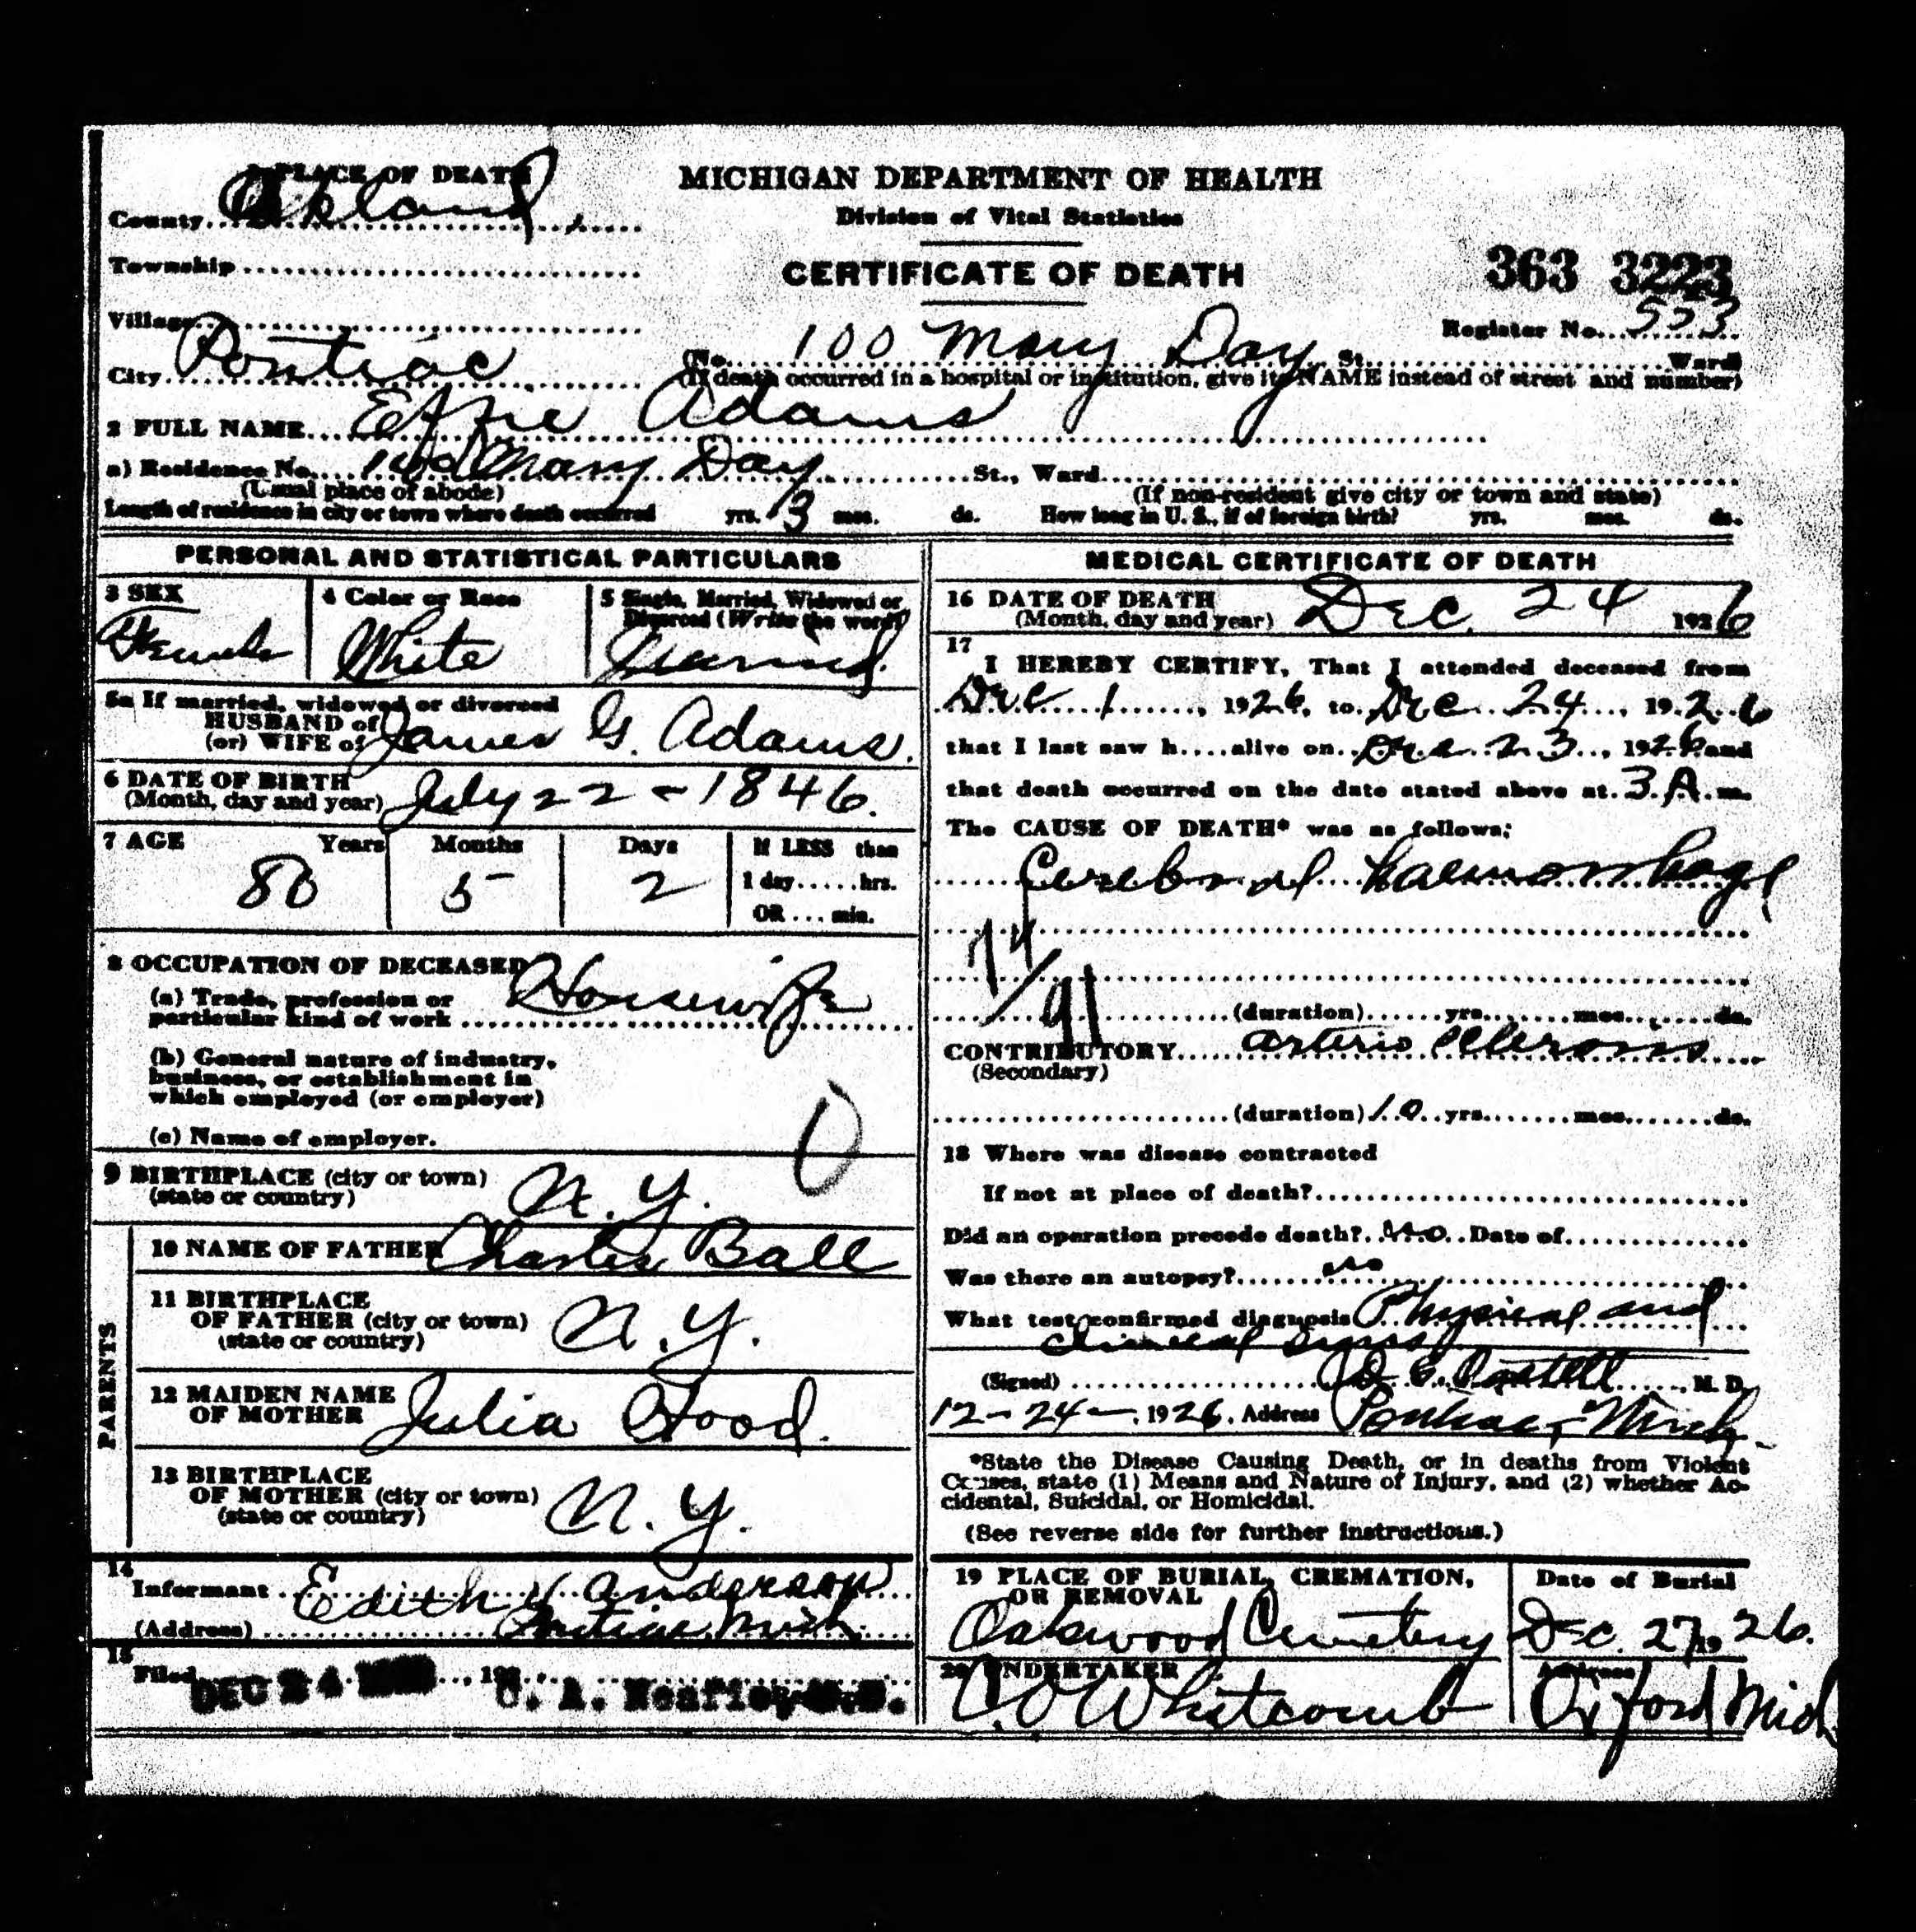 1 PLACE OF DEATH
County Oakland
MICHIGAN DEPARTMENT OF HEALTH
Division of Vital Statistics
Township
CERTIFICATE OF DEATH
363 3223
Village
Register No. 553
City Pontiac (No. 100 Mary Day St. Ward)
(If death occurred in a hospital or institution, give its NAME instead of street and number)
2 FULL NAME Effie Adams
a) Residence No. 100 Mary Day St., Ward
(Usual place of abode) (If non-resident give city or town and state)
Length of residence in city or town where death occurred yrs. 3 mos. ds. How long in U. S., if of foreign birth? yrs. mos. ds.
PERSONAL AND STATISTICAL PARTICULARS
3 SEX 4 Color or Race 5 Single, Married, Widowed or
Divorced (Write the word)
Female White Married
5a If married, widowed or divorced
HUSBAND of
(or) WIFE of James G. Adams.
6 DATE OF BIRTH
(Month, day and year) July 22 - 1846.
7 AGE Years Months Days If LESS than
80 5 2 1 day......hrs.
OR ... min.
8 OCCUPATION OF DECEASED
(a) Trade, profession or
particular kind of work Housewife
(b) General nature of industry,
business, or establishment in
which employed (or employer)
0
(c) Name of employer.
9 BIRTHPLACE (city or town)
(state or country) N. Y.
PARENTS
10 NAME OF FATHER Charles Ball
11 BIRTHPLACE
OF FATHER (city or town)
(state or country) N. Y.
12 MAIDEN NAME
OF MOTHER Julia Hood.
13 BIRTHPLACE
OF MOTHER (city or town)
(state or country) N. Y.
14
Informant Edith Anderson
(Address) Pontiac, Mich.
15
Filed DEC 24 192
MEDICAL CERTIFICATE OF DEATH
16 DATE OF DEATH
(Month, day and year) Dec. 24 1926
17
I HEREBY CERTIFY, That I attended deceased from
Dec 1, 1926, to Dec 24, 1926
that I last saw h....alive on Dec 23, 1926 and
that death occurred on the date stated above at 3 A. m.
The CAUSE OF DEATH* was as follows:
Cerebral haemorrhage
74
91
(duration) yrs. mos. ds.
CONTRIBUTORY Arterio Sclerosis
(Secondary)
(duration) 10 yrs. mos. ds.
18 Where was disease contracted
If not at place of death?
Did an operation precede death? No Date of
Was there an autopsy? no
What test confirmed diagnosis Physical and
clinical signs
(Signed) M. D.
12-24-, 1926. Address Pontiac, Mich.
*State the Disease Causing Death, or in deaths from Violent
Causes, state (1) Means and Nature of Injury, and (2) whether Ac-
cidental, Suicidal, or Homicidal.
(See reverse side for further instructions.)
19 PLACE OF BURIAL, CREMATION,
OR REMOVAL
Date of Burial
Oakwood Cemetery Dec. 27, 1926.
20 UNDERTAKER Address
C. O Whitcomb Oxford Mich